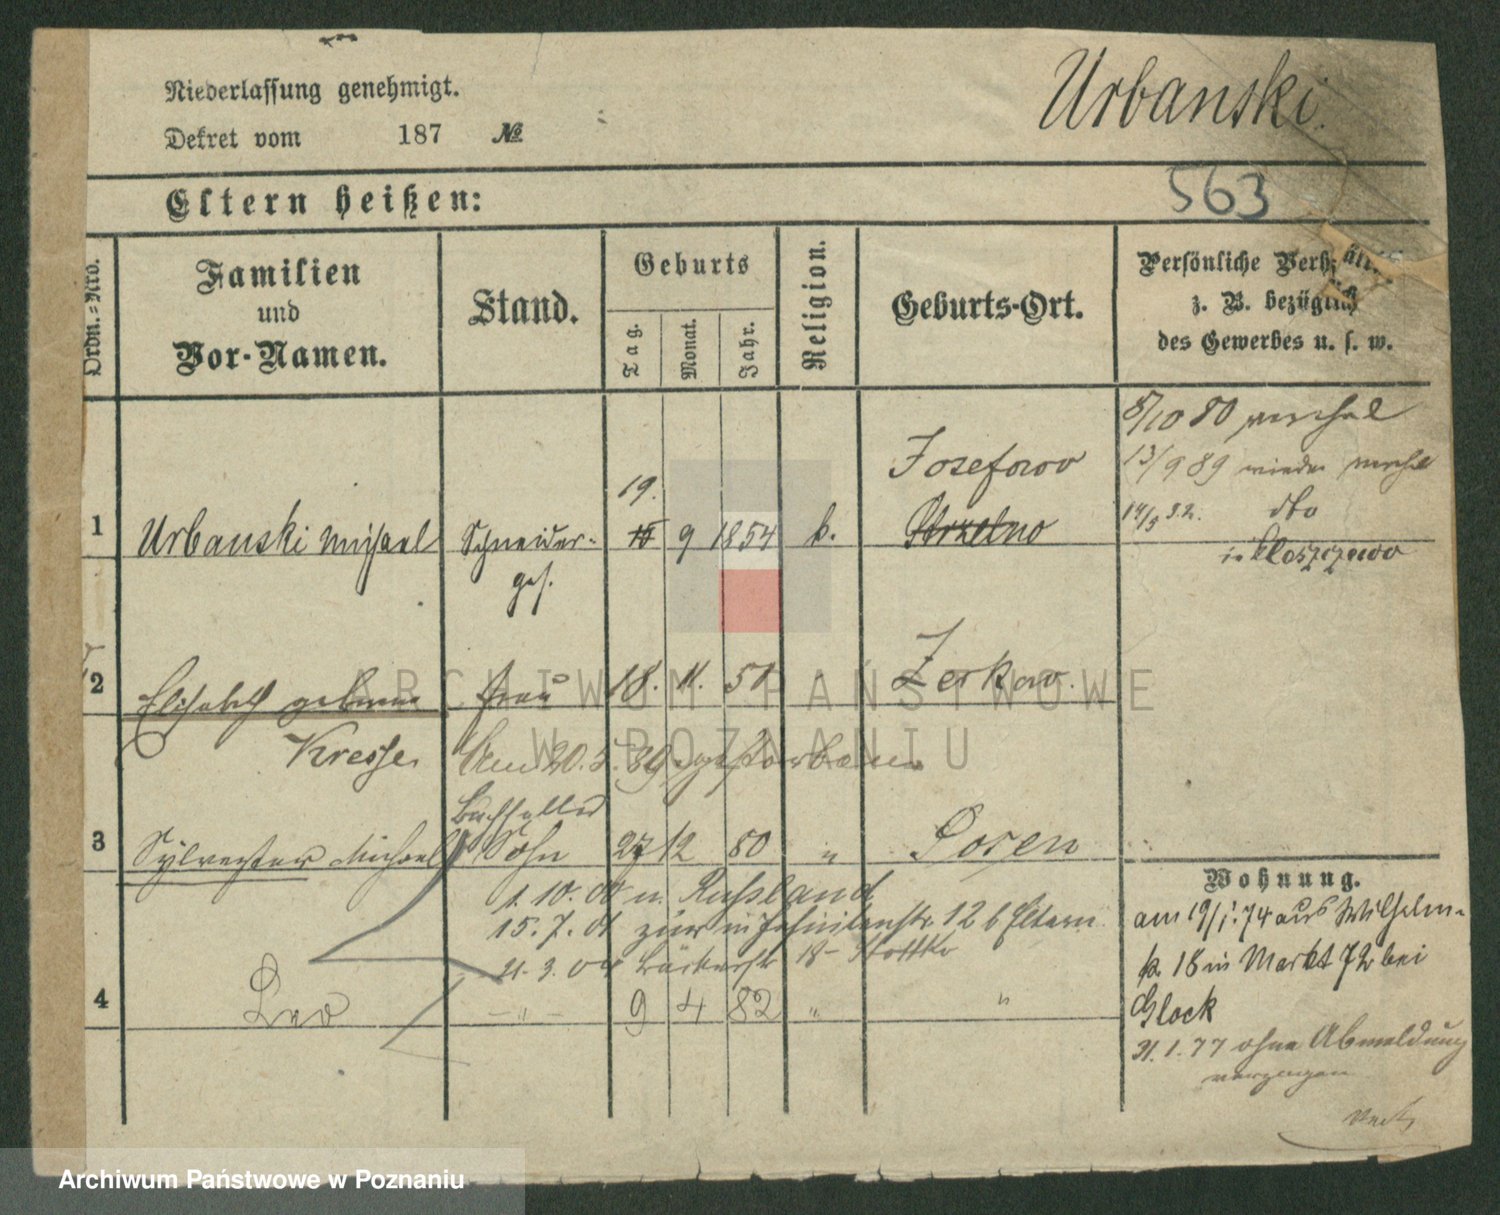 Niederlassung genehmigt.
Dekret vom 187 №
Urbanski.
563
Eltern heißen:
Ordn.=Nro.
Familien
und
Vor-Namen.
Stand.
Geburts
Tag.
Monat.
Jahr.
Religion.
Geburts-Ort.
Persönliche Verhält
z. B. bezüglich
des Gewerbes u. s. w.
8/10 80
13/9 89 wieder
dto
in
Josefowo
19.
1 Urbanski Michael Schneider- 15 9 1854 k. Strzelno
ges.
2 Elisabeth geborene Frau 18. 11. 51 Zerkow.
Kresse
Am 20.5.89 gestorben.
3 Sylvester Michael Sohn 27 12 80 " Posen
1. 10. 00 n. Russland
15. 7. 01 zur in Jesuitenstr. 12 b Eltern
21. 3. 04 Bäckerstr 18
4 Leo - " - 9 4 82 " "
Wohnung.
am 19/1. 74 aus Wilhelm-
18 in Markt 72 bei
Glock
31. 1. 77 ohne Abmeldung
verzogen
ARCHIWUM PAŃSTWOWE
W POZNANIU
Archiwum Państwowe w Poznaniu